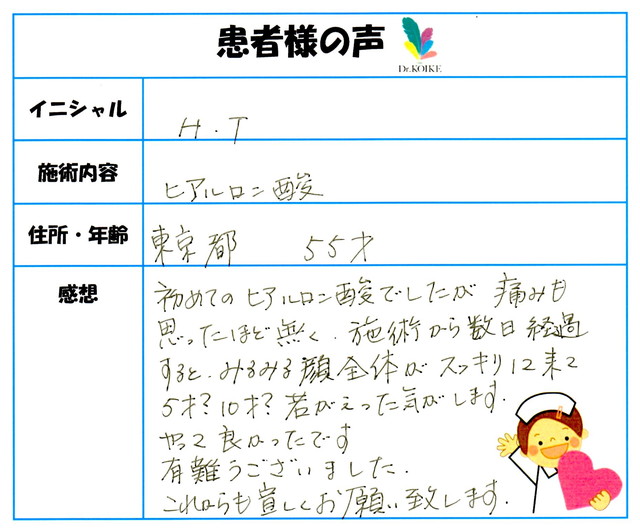 患者様の声
Dr.KOIKE
イニシャル
H・T
施術内容
ヒアルロン酸
住所・年齢
東京都 55才
感想
初めてのヒアルロン酸でしたが 痛みも
思ったほど無く、施術から数日経過
すると、みるみる顔全体がスッキリして来て
5才?10才?若がえった気がします。
やって良かったです
有難うございました.
これからも宜しくお願い致します.